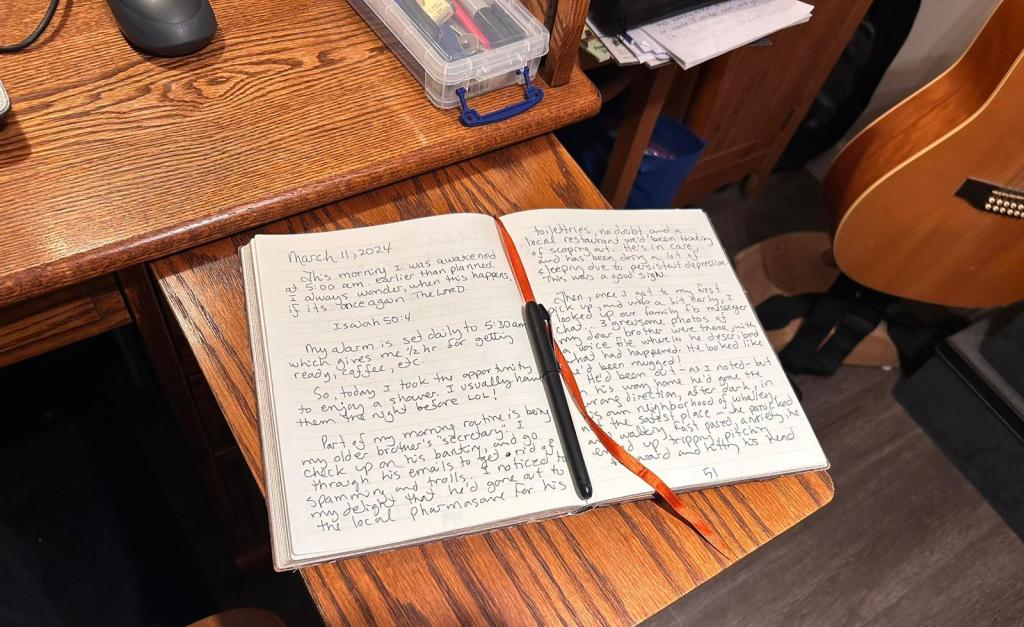 March 11, 2024
This morning I was awakened
at 5:00 a.m. earlier than planned.
I always wonder, when this happens,
if its once again The LORD.
Isaiah 50:4
My alarm is set daily to 5:30am
which gives me 1/2 hr for getting
ready, coffee, etc
So, today I took the opportunity
to enjoy a shower. I usually have
them the night before LOL!
Part of my morning routine is being
my older brother's "secretary". I
check up on his banking, and go
through his emails to get rid of
spamming and trolls. I noticed to
my delight that he'd gone out to
the local pharmasave for his
toiletries, no doubt, and a
local restaurant we'd been thinking
of scoping out. He's in care,
and has been doing a lot of
sleeping due to persistent depression
This was a good sign.
Then, once I got to my first
pick up, and was a bit early, I
looked up our family fb messenger
chat... 3 gruesome photos of
my dear brother were there, with
a voice file wherein he described
what had happened. He looked like
he'd been mugged!
He'd been out - as I noted - but
on his way home he'd gone the
wrong direction, after dark, in
his own neighborhood of Whalley,
not the safest place - he panicked
walking fast paced, anxiety, he
ended up tripping, pitching
forward and hitting his head
51